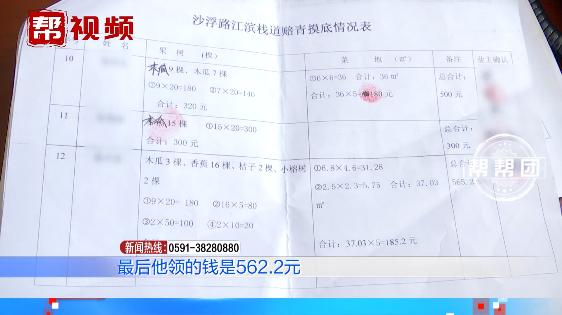 帮视频
沙浮路江滨栈道赔青摸底情况表
姓名 果树（棵） 菜地（㎡） 备注 业主确认
10 木瓜9棵、木瓜7棵 ①6×6=36 合计：36㎡ 总合计：
①9×20=180 ②7×20=140 合计：36×5=180元 500元
合计：320元
11 木瓜15棵 ①15×20=300 总合计：
合计：300元 300元
12 木瓜3棵、香蕉16棵、桔子2棵、小榕树 ①6.8×4.6=31.28 总合
2棵 ②2.5×2.3=5.75 合计：37.03 565.2
①9×20=180 ②16×5=80 ㎡
③2×50=100 ④2×10=20
合计：37.03×5=185.2元
帮帮团
新闻热线：0591-38280880
最后他领的钱是562.2元